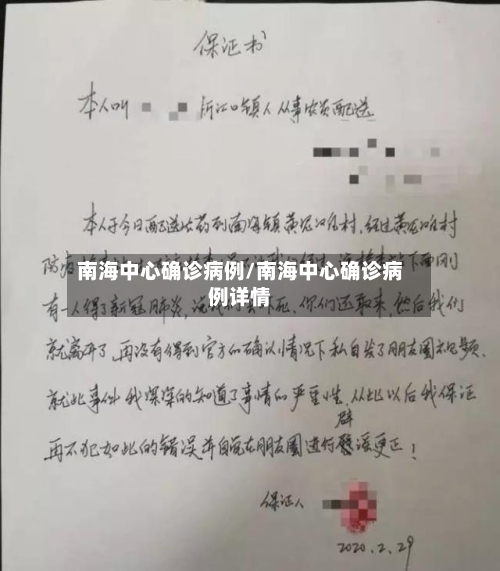 保证书
本人叫 沂江口镇人从事农资配送
本人于今日配送农药到南海镇黄泥咀村，经过黄泥咀村
防疫 下面刚
南海中心确诊病例/南海中心确诊病
例详情
有一人得了新冠肺炎，不死，你们还敢来，然后我们
就离开了，再没有得到官方的确认情况下私自发了朋友圈视频，
就此事件我深深的知道了事情的严重性，从此以后我保证
再不犯如此的错误并自觉在朋友圈进行辟谣更正！
保证人
2020.2.29